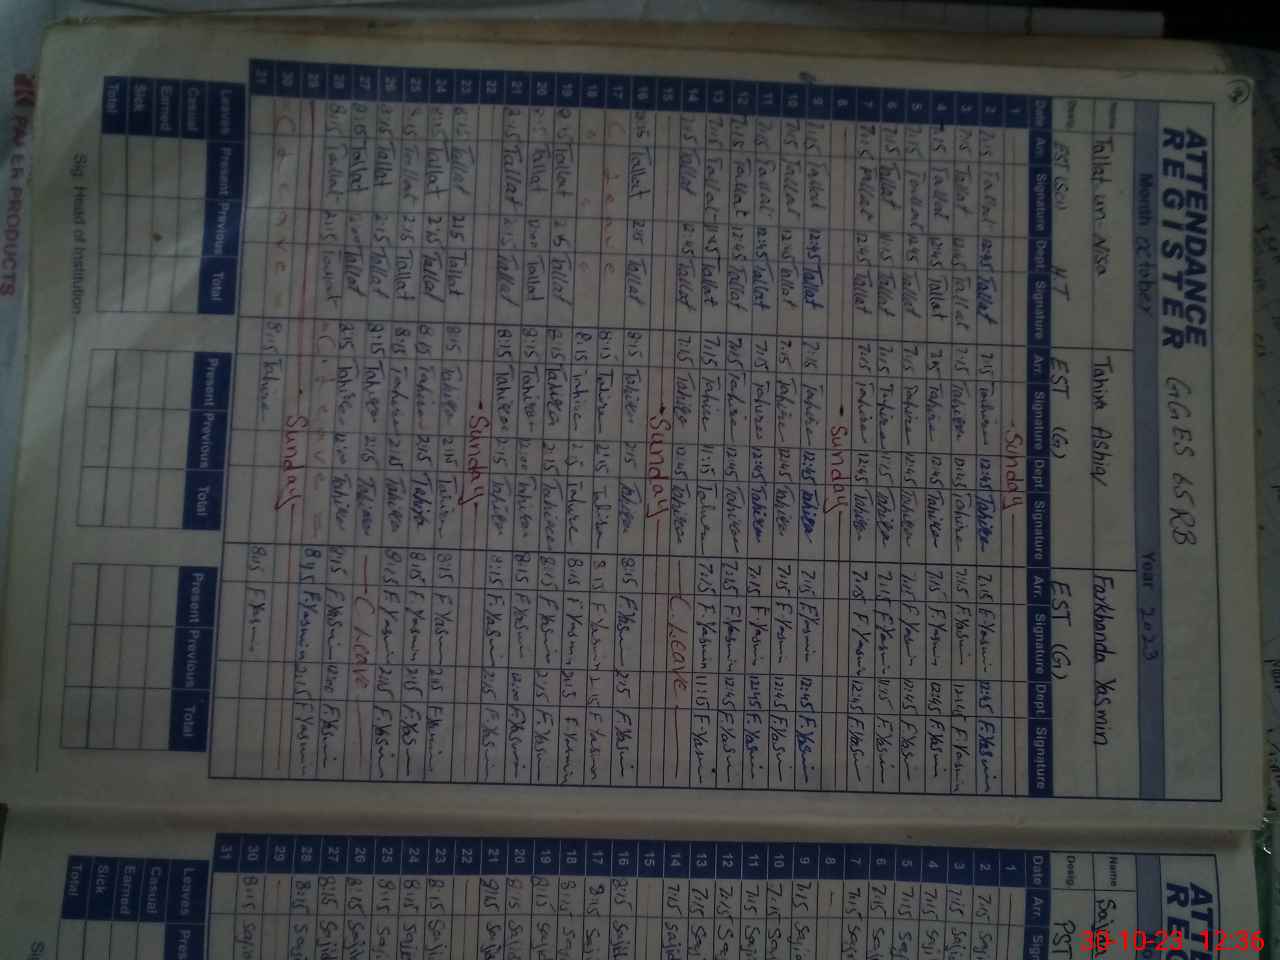 ATTENDANCE
REGISTER GGES 65RB
Month October Year 2023
Name Tallat un-Nisa Tahira Ashiq Farkhanda Yasmin
Desig. EST (G) EST (G)
Date Arr. Signature Dept. Signature Arr. Signature Dept. Signature Arr. Signature Dept. Signature
1 Sunday
2 7:15 Tallat 12:45 Tallat 7:15 Tahira 12:45 Tahira 7:15 F.Yasmin 12:45 F.Yasmin
3 7:15 Tallat 12:45 Tallat 7:15 Tahira 12:45 Tahira 7:15 F.Yasmin 12:45 F.Yasmin
4 7:15 Tallat 12:45 Tallat 7:15 Tahira 12:45 Tahira 7:15 F.Yasmin 12:45 F.Yasmin
5 7:15 Tallat 12:45 Tallat 7:15 Tahira 12:45 Tahira 7:15 F.Yasmin 12:45 F.Yasmin
6 7:15 Tallat 11:15 Tallat 7:15 Tahira 11:15 Tahira 7:15 F.Yasmin 11:15 F.Yasmin
7 7:15 Tallat 12:45 Tallat 7:15 Tahira 12:45 Tahira 7:15 F.Yasmin 12:45 F.Yasmin
8 Sunday
9 7:15 Tallat 12:45 Tallat 7:15 Tahira 12:45 Tahira 7:15 F.Yasmin 12:45 F.Yasmin
10 7:15 Tallat 12:45 Tallat 7:15 Tahira 12:45 Tahira 7:15 F.Yasmin 12:45 F.Yasmin
11 7:15 Tallat 12:45 Tallat 7:15 Tahira 12:45 Tahira 7:15 F.Yasmin 12:45 F.Yasmin
12 7:15 Tallat 12:45 Tallat 7:15 Tahira 12:45 Tahira 7:15 F.Yasmin 12:45 F.Yasmin
13 7:15 Tallat 11:45 Tallat 7:15 Tahira 11:15 Tahira 7:15 F.Yasmin 11:15 F.Yasmin
14 7:15 Tallat 12:45 Tallat 7:15 Tahira 12:45 Tahira C leave
15 Sunday
16 8:15 Tallat 2:15 Tallat 8:15 Tahira 2:15 Tahira 8:15 F.Yasmin 2:15 F.Yasmin
17 C leave 8:15 Tahira 2:15 Tahira 8:15 F.Yasmin 2:15 F.Yasmin
18 8:15 Tahira 2:15 Tahira 8:15 F.Yasmin 2:15 F.Yasmin
19 8:15 Tallat 2:15 Tallat 8:15 Tahira 2:15 Tahira 8:15 F.Yasmin 2:15 F.Yasmin
20 8:15 Tallat 12:00 Tallat 8:15 Tahira 12:00 Tahira 8:15 F.Yasmin 12:00 F.Yasmin
21 8:15 Tallat 2:15 Tallat 8:15 Tahira 2:15 Tahira 8:15 F.Yasmin 2:15 F.Yasmin
22 Sunday
23 8:15 Tallat 2:15 Tallat 8:15 Tahira 2:15 Tahira 8:15 F.Yasmin 2:15 F.Yasmin
24 8:15 Tallat 2:15 Tallat 8:15 Tahira 2:15 Tahira 8:15 F.Yasmin 2:15 F.Yasmin
25 8:15 Tallat 2:15 Tallat 8:15 Tahira 2:15 Tahira 8:15 F.Yasmin 2:15 F.Yasmin
26 8:15 Tallat 2:15 Tallat 8:15 Tahira 2:15 Tahira C leave
27 8:15 Tallat 12:00 Tallat 8:15 Tahira 12:00 Tahira 8:15 F.Yasmin 12:00 F.Yasmin
28 8:15 Tallat 2:15 Tallat C leave 8:45 F.Yasmin 2:15 F.Yasmin
29 Sunday
30 C leave 8:15 Tahira 8:15 F.Yasmin
31
Leaves Present Previous Total Present Previous Total Present Previous Total
Casual
Earned
Sick
Total
Sig. Head of Institution
PAPER PRODUCTS
Name
Desig. PST
Date Arr.
1
2 7:15
3 7:15
4 7:15
5 7:15
6 7:15
7 7:15
8
9 7:15
10 7:15
11 7:15
12 7:15
13 7:15
14 7:15
15
16 8:15
17 8:15
18 8:15
19 8:15
20 8:15
21 8:15
22
23 8:15
24 8:15
25 8:15
26 8:15
27 8:15
28 8:15
29
30 8:15
31
Leaves
Casual
Earned
Sick
Total
30-10-23 12:36